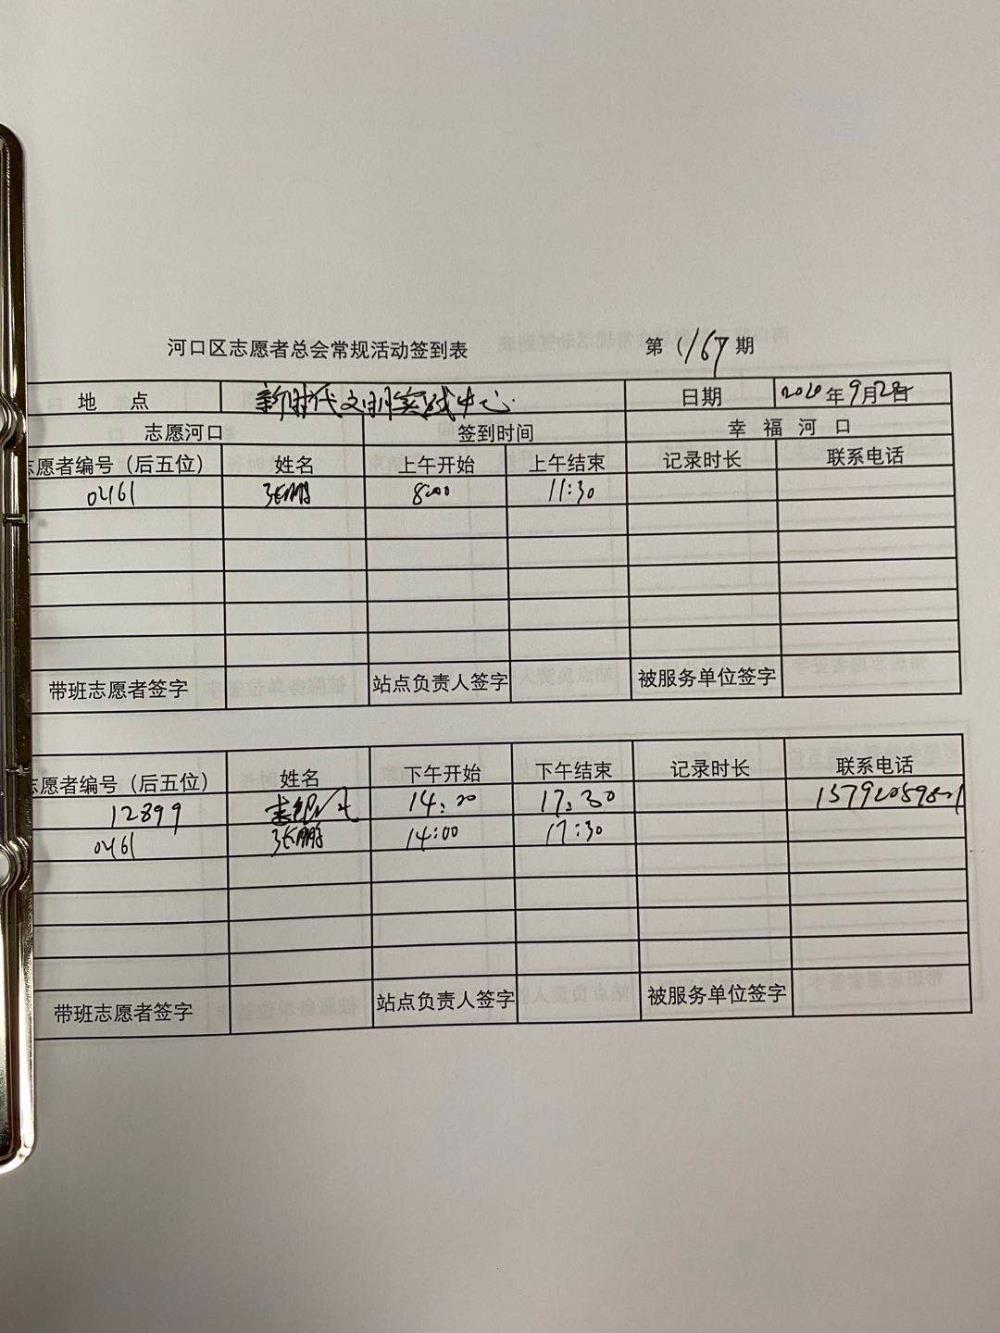 河口区志愿者总会常规活动签到表 第 1167 期
地 点 新时代文明实践中心 日期 2020年9月2日
志愿河口 签到时间 幸 福 河 口
志愿者编号（后五位） 姓名 上午开始 上午结束 记录时长 联系电话
0461 张鹏 8:00 11:30
带班志愿者签字 站点负责人签字 被服务单位签字
志愿者编号（后五位） 姓名 下午开始 下午结束 记录时长 联系电话
12899 14:00 17:30
0461 张鹏 14:00 17:30
带班志愿者签字 站点负责人签字 被服务单位签字